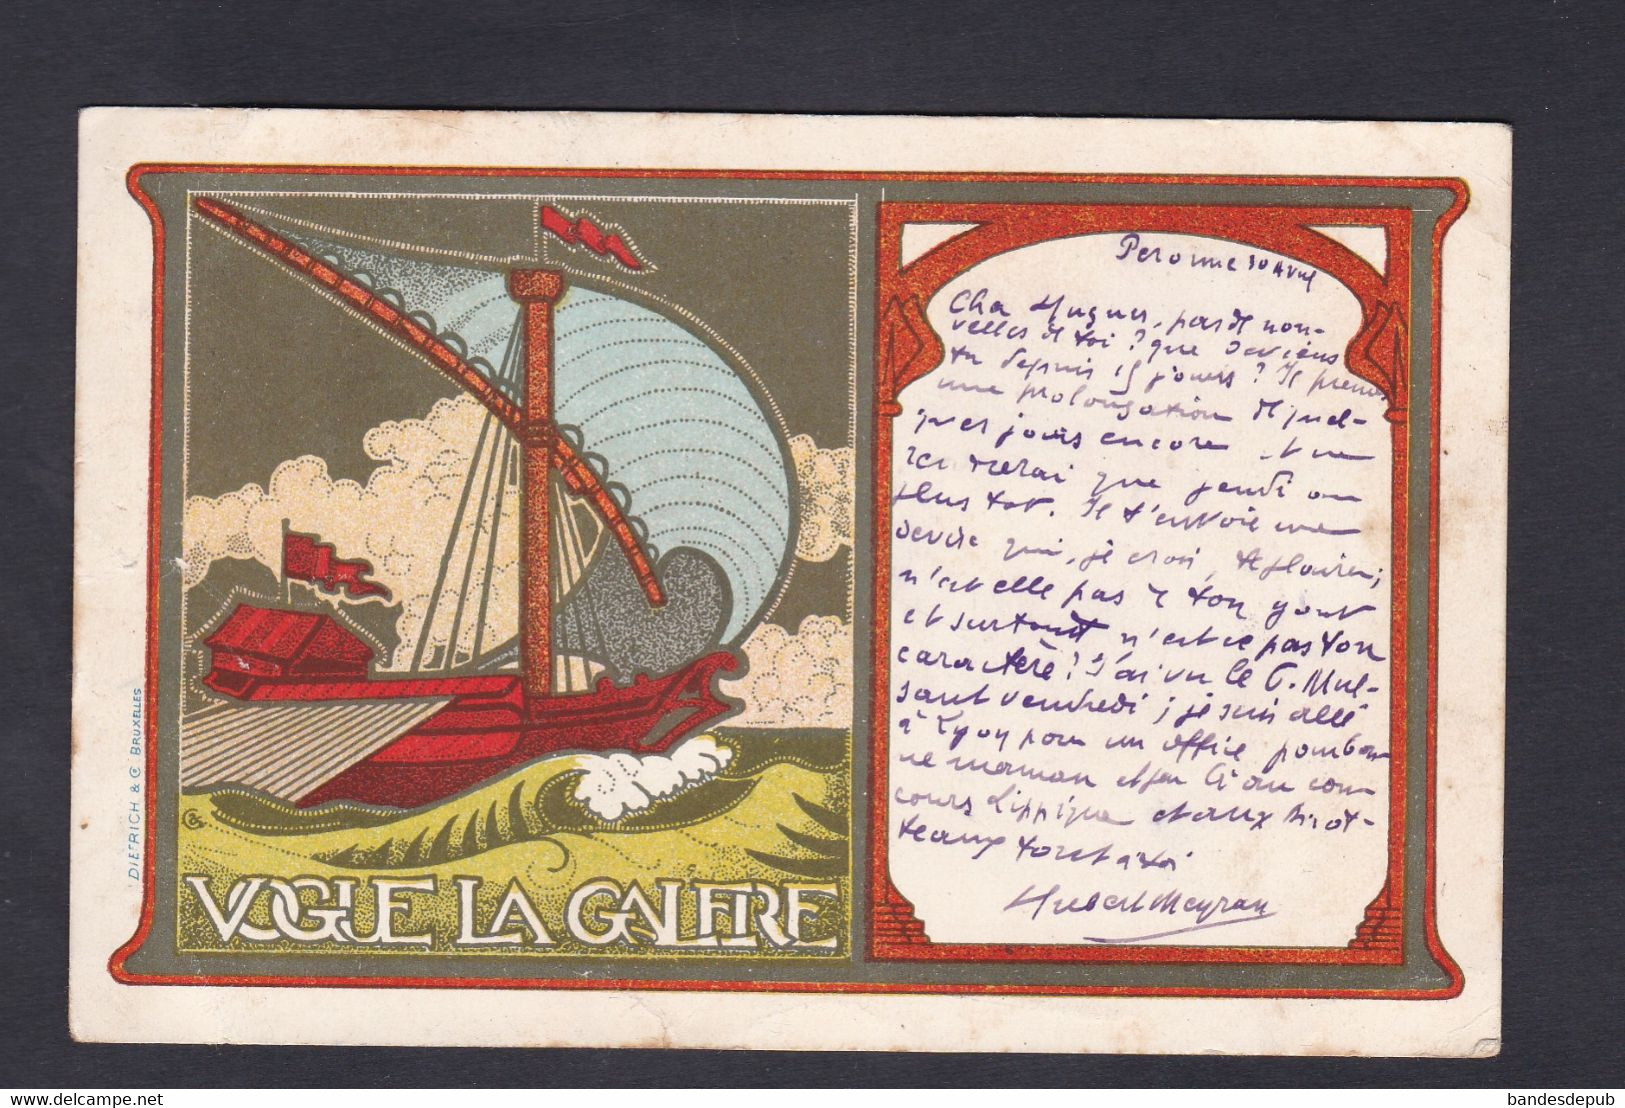 DIETRICH & Co BRUXELLES
VOGUE LA GALERE
Peronne 30 Avril
Cher Hugues, pas de nou-
velles de toi? que deviens
tu depuis 15 jours? Je prends
une prolongation de quel-
ques jours encore et ne
rentrerai que jeudi au
plus tot. Je t'envoie une
devise qui, je crois, te plaira;
n'est elle pas de ton gout
et surtout n'est ce pas ton
caractère? J'ai vu le C. Mul-
sant vendredi; je suis allé
à Lyon pour un office pour bon-
ne maman et j'en ai au con-
cours hippique et aux
teaux tout à toi
Hubert Meyran
bandesdepub